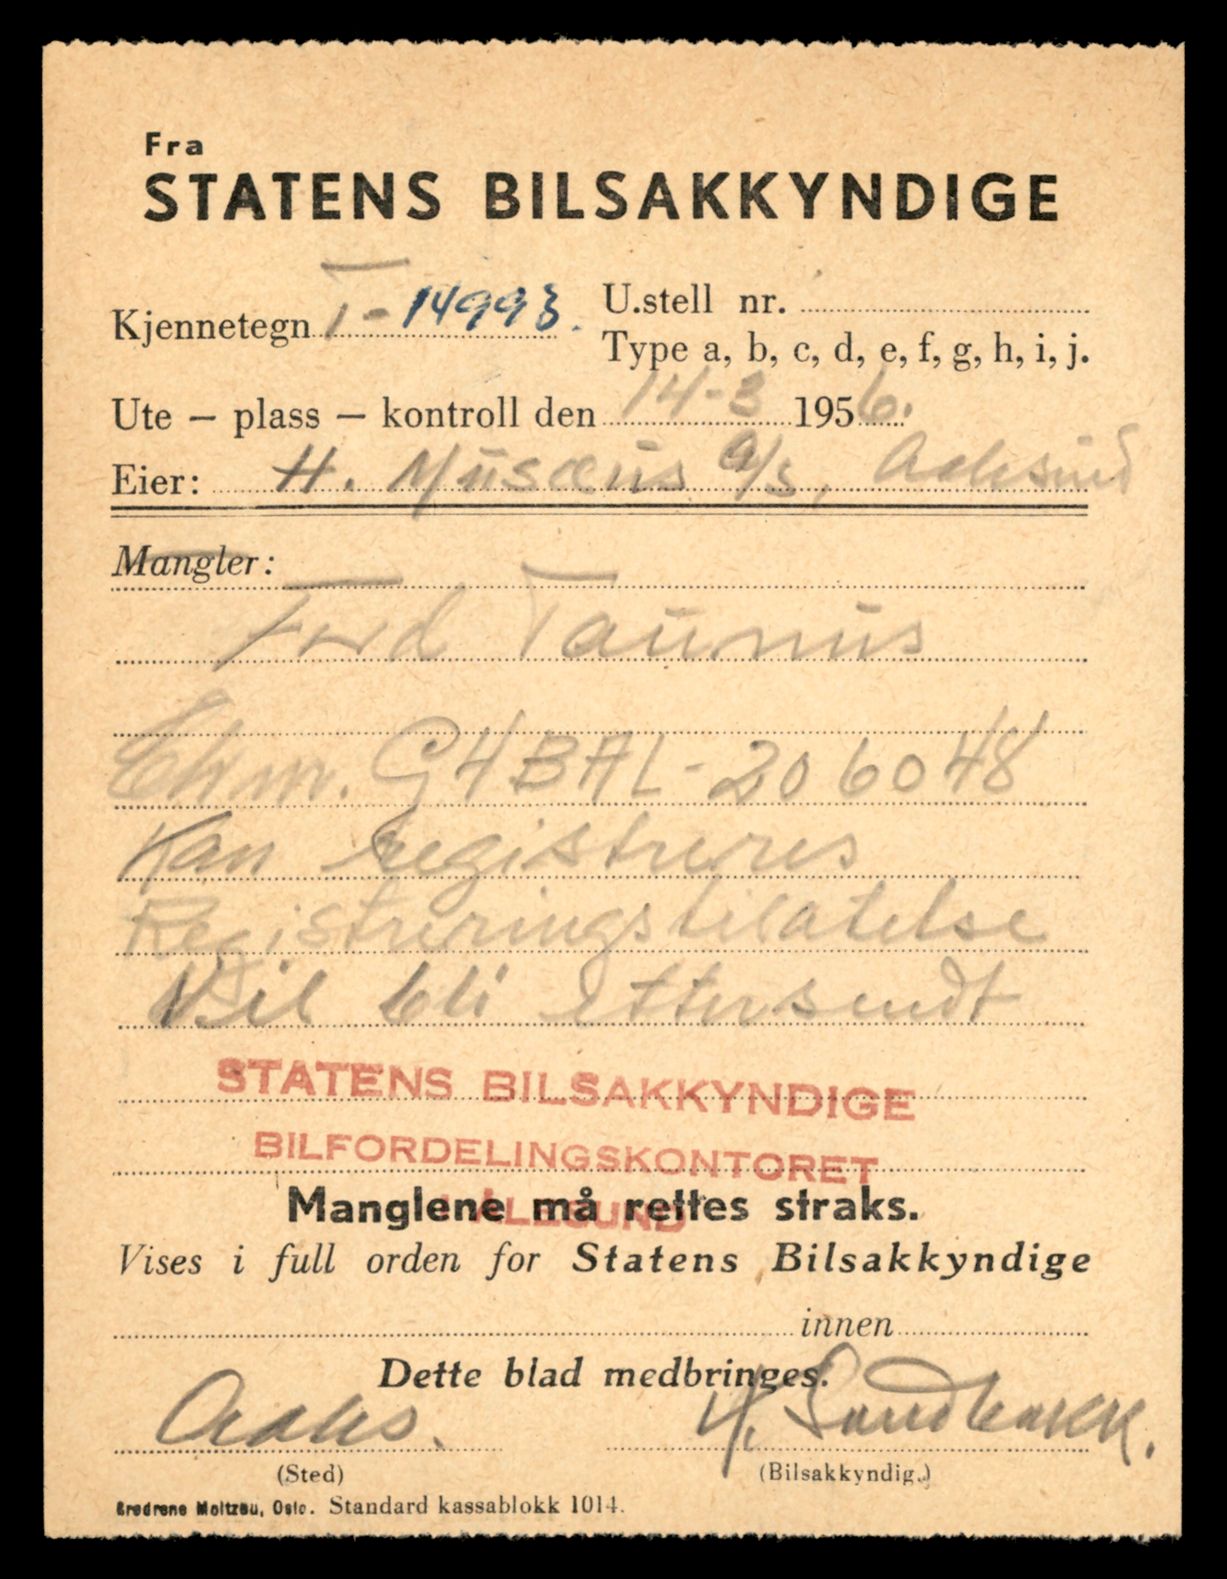 Fra
STATENS BILSAKKYNDIGE
Kjennetegn T-14993. U.stell nr.
Type a, b, c, d, e, f, g, h, i, j.
Ute – plass – kontroll den 14-3 1956.
Eier: H. Musæus a/s, Aalesund
Mangler:
Ford Taunus
Chnr. G4BAL-206048
Kan registreres
Registreringstilatelse
Vil bli ettersendt
STATENS BILSAKKYNDIGE
BILFORDELINGSKONTORET
ÅLESUND
Manglene må rettes straks.
Vises i full orden for Statens Bilsakkyndige
innen
Dette blad medbringes.
Aales. H. Sandbakk.
(Sted) (Bilsakkyndig.)
Brødrene Moltzau, Oslo. Standard kassablokk 1014.